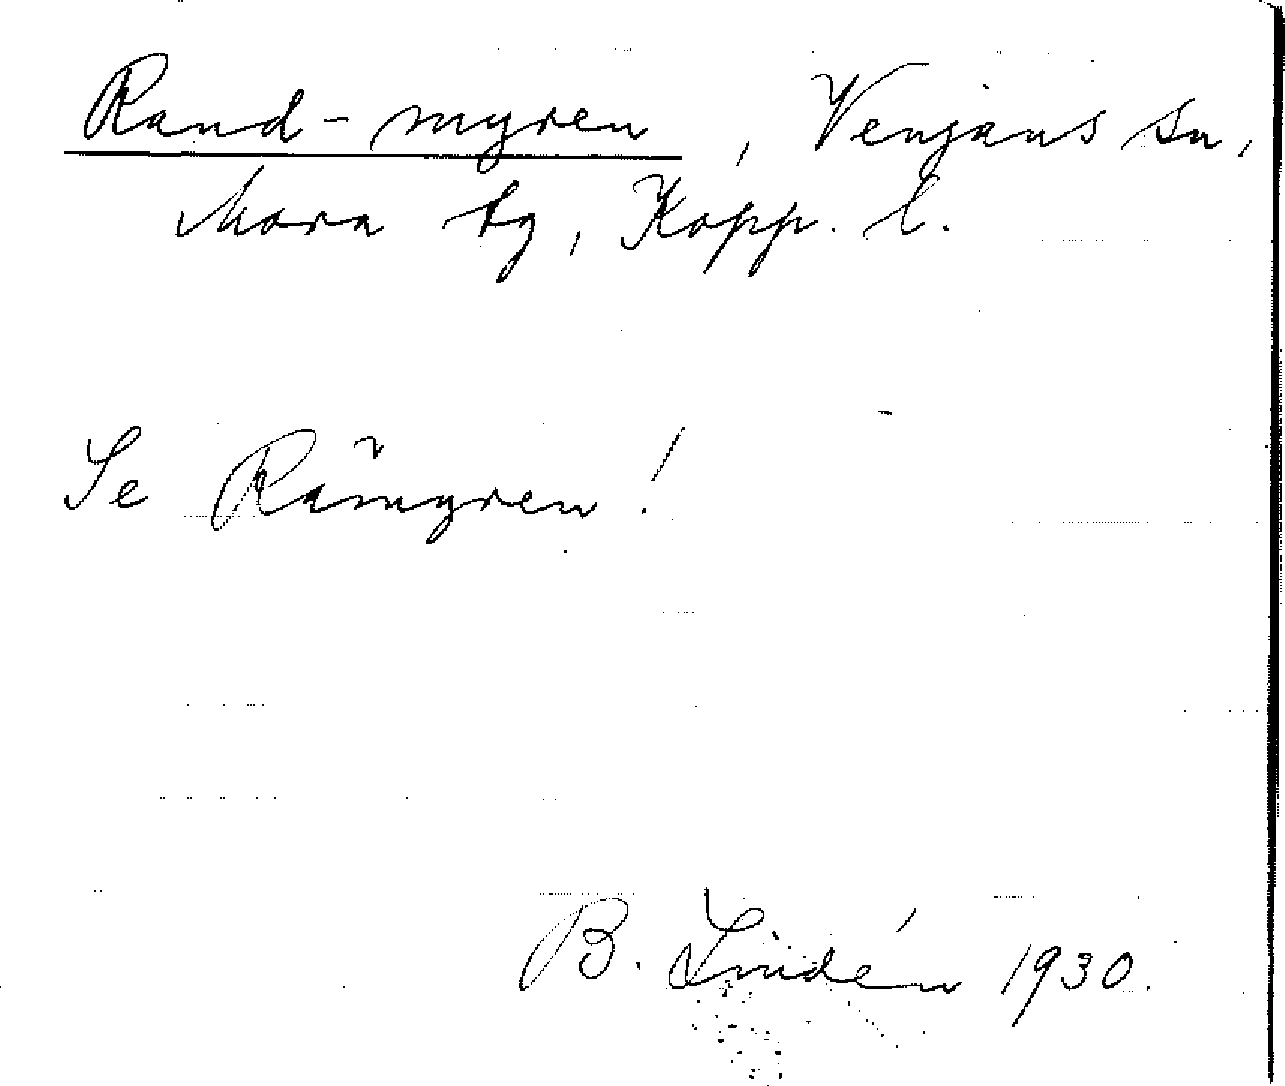 Rand-myren, Venjans sn,
Mora tg, Kopp. l.
Se Råmyren!
B. Lindén 1930.